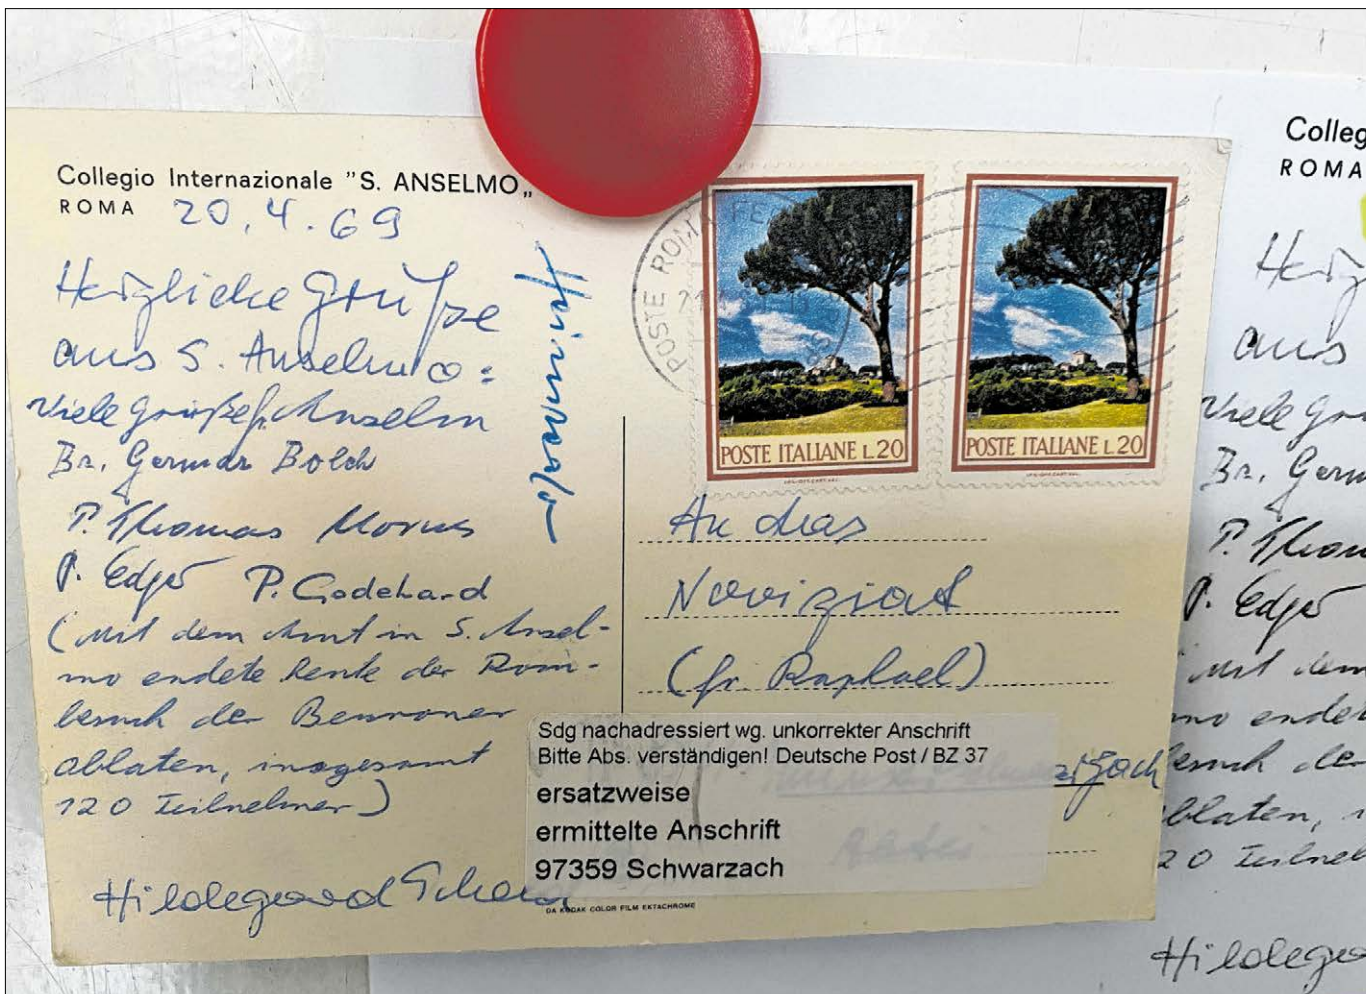 Collegio Internazionale "S. ANSELMO„
ROMA 20.4.69
Herzliche Grüße
aus S. Anselmo:
Viele Grüße P. Anselm
Br. German Bolch
P. Thomas Morus
P. Edgar P. Godehard
(Mit dem Amt in S. Ansel-
mo endete heute der Rom-
besuch der Beuroner
oblaten, insgesamt
120 Teilnehmer)
Hildegard
DA KODAK COLOR FILM EKTACHROME
POSTE ROMA
POSTE ITALIANE L.20
POSTE ITALIANE L.20
An das
Noviziat
(fr. Raphael)
Sdg nachadressiert wg. unkorrekter Anschrift
Bitte Abs. verständigen! Deutsche Post / BZ 37
ersatzweise
ermittelte Anschrift
97359 Schwarzach
Abtei
Colleg
ROMA
Herz
aus
Viele Grü
Br. Germ
P. Thom
P. Edgar
Mit dem
mo endet
besuch der
oblaten, i
20 Teilneh
Hildega